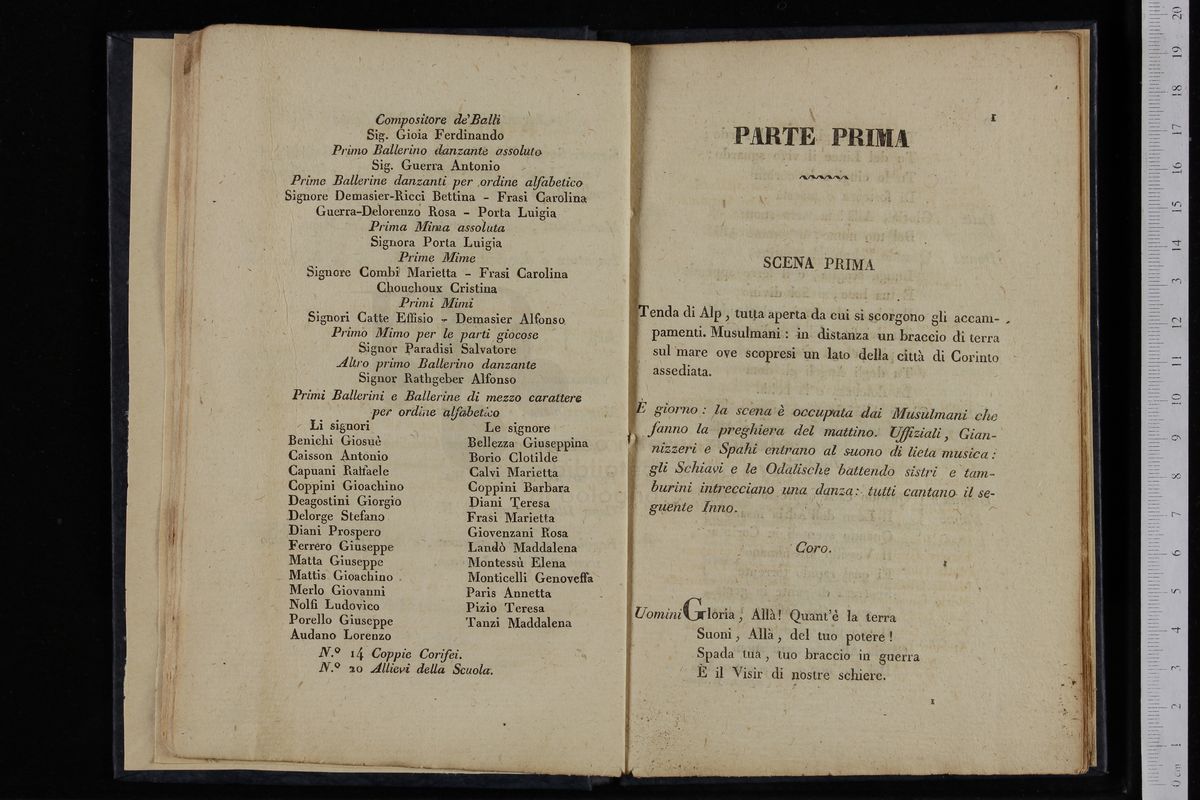 Compositore de' Balli
Sig. Gioia Ferdinando
Primo Ballerino danzante assoluto
Sig. Guerra Antonio
Prime Ballerine danzanti per ordine alfabetico
Signore Demasier-Ricci Bettina - Frasi Carolina
Guerra-Delorenzo Rosa - Porta Luigia
Prima Mima assoluta
Signora Porta Luigia
Prime Mime
Signore Combi Marietta - Frasi Carolina
Chouchoux Cristina
Primi Mimi
Signori Catte Effisio - Demasier Alfonso
Primo Mimo per le parti giocose
Signor Paradisi Salvatore
Altro primo Ballerino danzante
Signor Rathgeber Alfonso
Primi Ballerini e Ballerine di mezzo carattere
per ordine alfabetico
Li signori
Benichi Giosuè
Caisson Antonio
Capuani Raffaele
Coppini Gioachino
Deagostini Giorgio
Delorge Stefano
Diani Prospero
Ferrero Giuseppe
Matta Giuseppe
Mattis Gioachino
Merlo Giovanni
Nolfi Ludovico
Porello Giuseppe
Audano Lorenzo
Le signore
Bellezza Giuseppina
Borio Clotilde
Calvi Marietta
Coppini Barbara
Diani Teresa
Frasi Marietta
Giovenzani Rosa
Landò Maddalena
Montessù Elena
Monticelli Genoveffa
Paris Annetta
Pizio Teresa
Tanzi Maddalena
N.º 14 Coppie Corifei.
N.º 20 Allievi della Scuola.
1
PARTE PRIMA
SCENA PRIMA
Tenda di Alp, tutta aperta da cui si scorgono gli accam-
pamenti. Musulmani: in distanza un braccio di terra
sul mare ove scopresi un lato della città di Corinto
assediata.
È giorno: la scena è occupata dai Musulmani che
fanno la preghiera del mattino. Uffiziali, Gian-
nizzeri e Spahi entrano al suono di lieta musica:
gli Schiavi e le Odalische battendo sistri e tam-
burini intrecciano una danza: tutti cantano il se-
guente Inno.
Coro.
Uomini Gloria, Allà! Quant'è la terra
Suoni, Allà, del tuo potere!
Spada tua, tuo braccio in guerra
È il Visir di nostre schiere.
1
0 cm 1 2 3 4 5 6 7 8 9 10 11 12 13 14 15 16 17 18 19 20